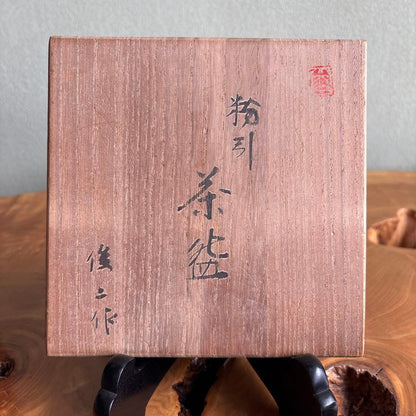 粉引
茶盌
俊二作